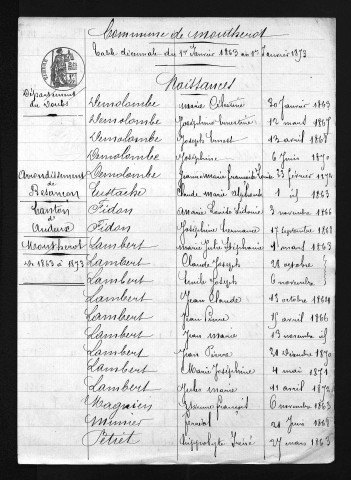 Commune de Montherot
Table décennale du 1er Janvier 1863 au 1er Janvier 1873
Naissances
Département
du Doubs
Arrondissement
de
Besançon
Canton
d'
Audeux
Montherot
de 1863 à 1873
Demolombe Marie Célestine 30 Janvier 1863
Demolombe Joséphine Ernestine 12 mars 1867
Demolombe Joseph Ernest 13 avril 1868
Demolombe Joséphine 6 Juin 1870
Demolombe Jeanne marie françoise 23 février 1872
Eustache Claude marie alphonse 1 id 1863
Fidon Marie 3 novembre 1866
Fidon Joséphine Germaine 17 septembre 1868
Lambert Marie Julie Stéphanie 4 mars 1863
Lambert Claude Joseph 28 octobre
Lambert Emile Joseph 6 novembre
Lambert Jean Claude 13 octobre 1864
Lambert Jean Pierre 15 avril 1866
Lambert Jean marie 13 novembre id
Lambert Jean Pierre 31 Décembre 1870
Lambert Marie Joséphine 4 mai 1871
Lambert Jules marie 11 avril 1872
Magnien françois 6 novembre 1863
Meunier 21 Juin 1868
Petiet hippolyte 27 mars 1863